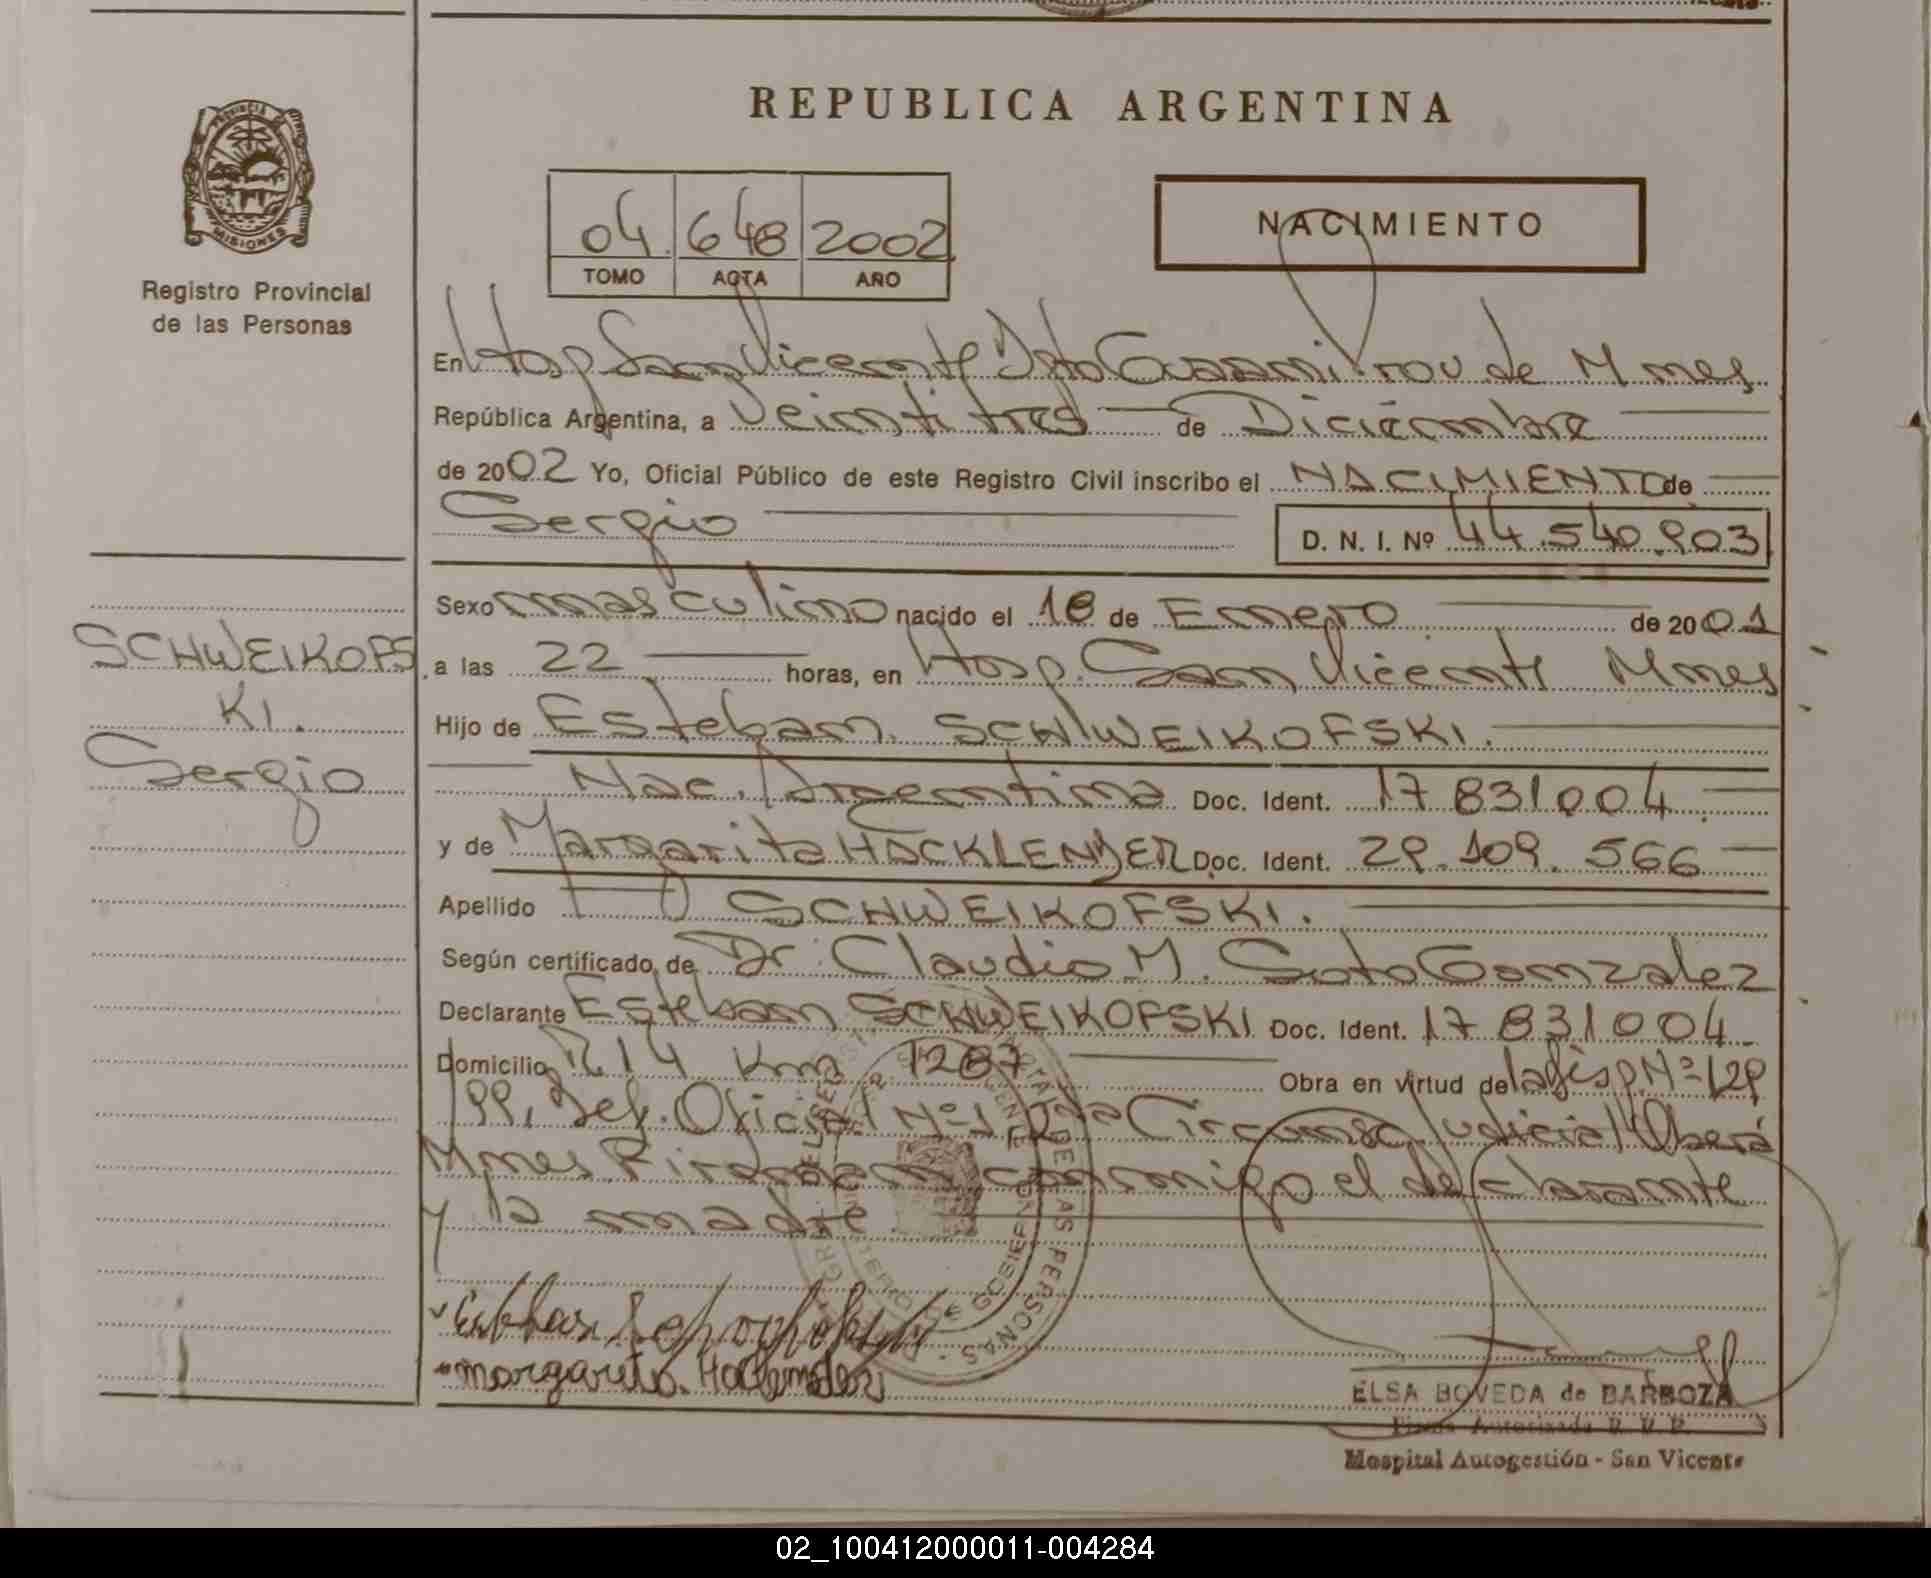 REPUBLICA ARGENTINA
PROVINCIA DE
MISIONES
Registro Provincial
de las Personas
04 648 2002
TOMO ACTA AÑO
NACIMIENTO
En Hosp San Vicente Dpto Guaraní Prov. de Mnes
República Argentina, a Veinti tres de Diciembre
de 2002 Yo, Oficial Público de este Registro Civil inscribo el NACIMIENTO de
Sergio D. N. I. Nº 44.540.903
Sexo masculino nacido el 18 de Enero de 2001
a las 22 horas, en Hosp. San Vicente Mnes
Hijo de Esteban SCHWEIKOFSKI.
Nac. Argentina Doc. Ident. 17 831004
y de Margarita Doc. Ident. 29.109.566
Apellido SCHWEIKOFSKI.
Según certificado de Dr. Claudio M. Soto Gonzalez
Declarante Esteban SCHWEIKOFSKI Doc. Ident. 17 831004
Domicilio R 14 Km 1287 Obra en virtud de la Disp. Nº 129
/99, Def. Oficial Nº 1 Circunsc Judicial Oberá
Mnes. Firman conmigo el declarante
y la madre
SCHWEIKOFS
KI.
Sergio
DE LAS PERSONAS
DE GOBIERNO
margarita
ELSA BOVEDA de BARBOZA
Firma Autorizada R. P. P.
Hospital Autogestión - San Vicente
02_100412000011-004284